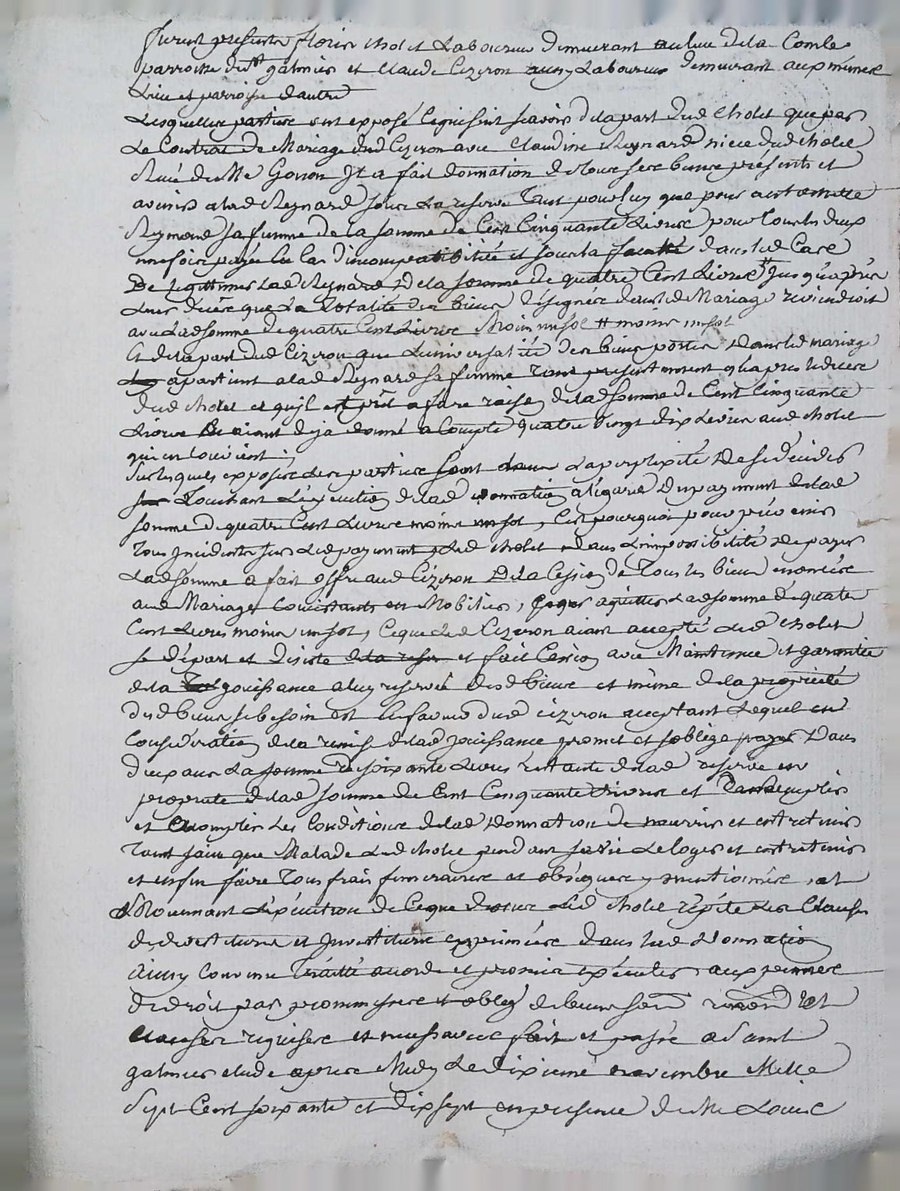 furent presents floris cholet Laboureur demeurant au lieu de la Combe
parroisse de St galmier et Claude Cizeron aussy Laboureur demeurant aux mêmes
Lieu et parroisse d'autre
Lesquelles parties ont exposé ce qui suit savoir de la part dud cholet que par
Le Contrat de Mariage dud Cizeron avec Claudine Reynard niece dud cholet
Reçu de Me Gonon Il a fait donnation de tous ses biens présents et
avenirs a lad Reynard sous La reserve tant pour luy que pour
Reymond sa femme de la somme de Cent Cinquante Livres pour tous les deux
une fois payée Le Cas d'incompatibilité et sous la faculté dans led Case
De lad Reynard De la somme de quatre Cent Livres jusqu'après
Leur décès que La totalité des biens designés dans led Mariage reviendroit
avec Lad somme de quatre Cent Livres Moins un sol # moins un sol
Et de la part dud Cizeron que L'universalité des biens portés dans led mariage
apartient a lad Reynard sa femme tant presentement qu'apres le décès
dud cholet et qu'il est prêt a faire raison de lad somme de Cent Cinquante
Livres En aiant deja donné a Compte quatre vingt dix Livres aud cholet
qui en Convient ;
Sur lesquels exposés les parties sont dans La perplexité De se decider
Touchant L'execution de lad donnation a l'égard du payement de lad
somme de quatre Cent Livres moins un sol, C'est pourquoi pour prévenir
Tous Incidents sur Led payement Led cholet dans L'impossibilité de payer
Lad somme a fait offre aud Cizeron De la Cession de Tous les biens enoncés
aud Mariage Consistants en Mobilier, pour aquitter Lad somme de quatre
Cent Livres moins un sol, Ce que Led Cizeron aiant accepté Led cholet
se départ et Désiste et fait Cession avec Maintenue et garantie
de la jouissance a luy reservée desd biens et même de la proprieté
desd biens si besoin est en faveur dud Cizeron acceptant Lequel en
Considération de la remise de lad Jouissance promet et s'oblige payer Dans
deux ans La somme de soixante Livres restante de lad reserve en
proprieté de lad somme de Cent Cinquante Livres et
et accomplir Les Conditions de lad donnation de nourrir et entretenir
tant sain que Malade Led cholet pendant sa vie Le loger et entretenir
et enfin faire Tous frais funeraires et obseques y mentionnés, et
Moyennant L'execution de Ce que dessus Led cholet répète Les Clauses
de devestiture et Investiture exprimées dans lad donnation
Ainsy Convenu Traitté acordé et promis exécuter aux peines
de droit par prommesses et oblig de biens soum renon et
Clauses requises et necessaires fait et passé a Saint
galmier etude apres Midy Le dixieme novembre Mille
Sept Cent soixante et dix sept en presence de Me Louis